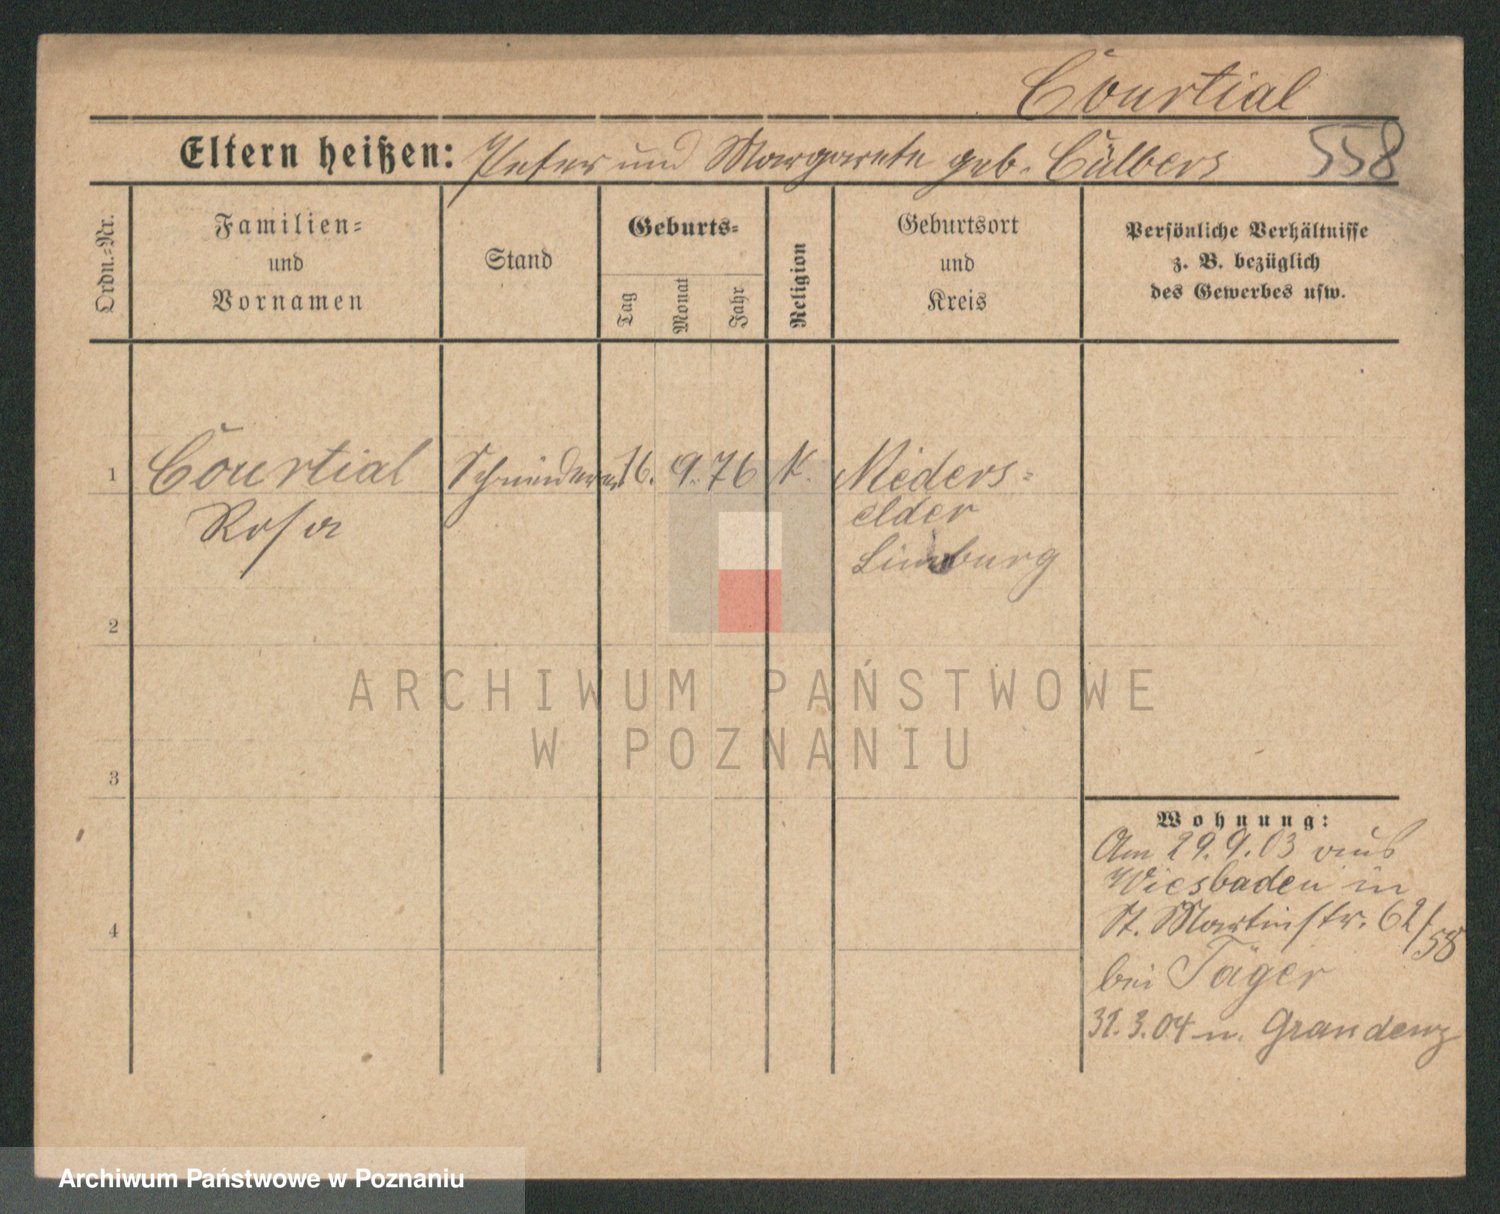 Courtial
Eltern heißen: Peter und Margarete geb. Cülbers
558
Ordn.=Nr.
Familien=
und
Vornamen
Stand
Geburts=
Tag
Monat
Jahr
Religion
Geburtsort
und
Kreis
Persönliche Verhältnisse
z. B. bezüglich
des Gewerbes usw.
1
Courtial
Rosa
16. 9. 76 K.
Nieders=
elder
Limburg
2
ARCHIWUM PAŃSTWOWE
W POZNANIU
3
4
Wohnung:
Am 29.9.03 aus
Wiesbaden in
St. Martinstr. 62/58
bei Täger
31.3.04 n. Graudenz
Archiwum Państwowe w Poznaniu